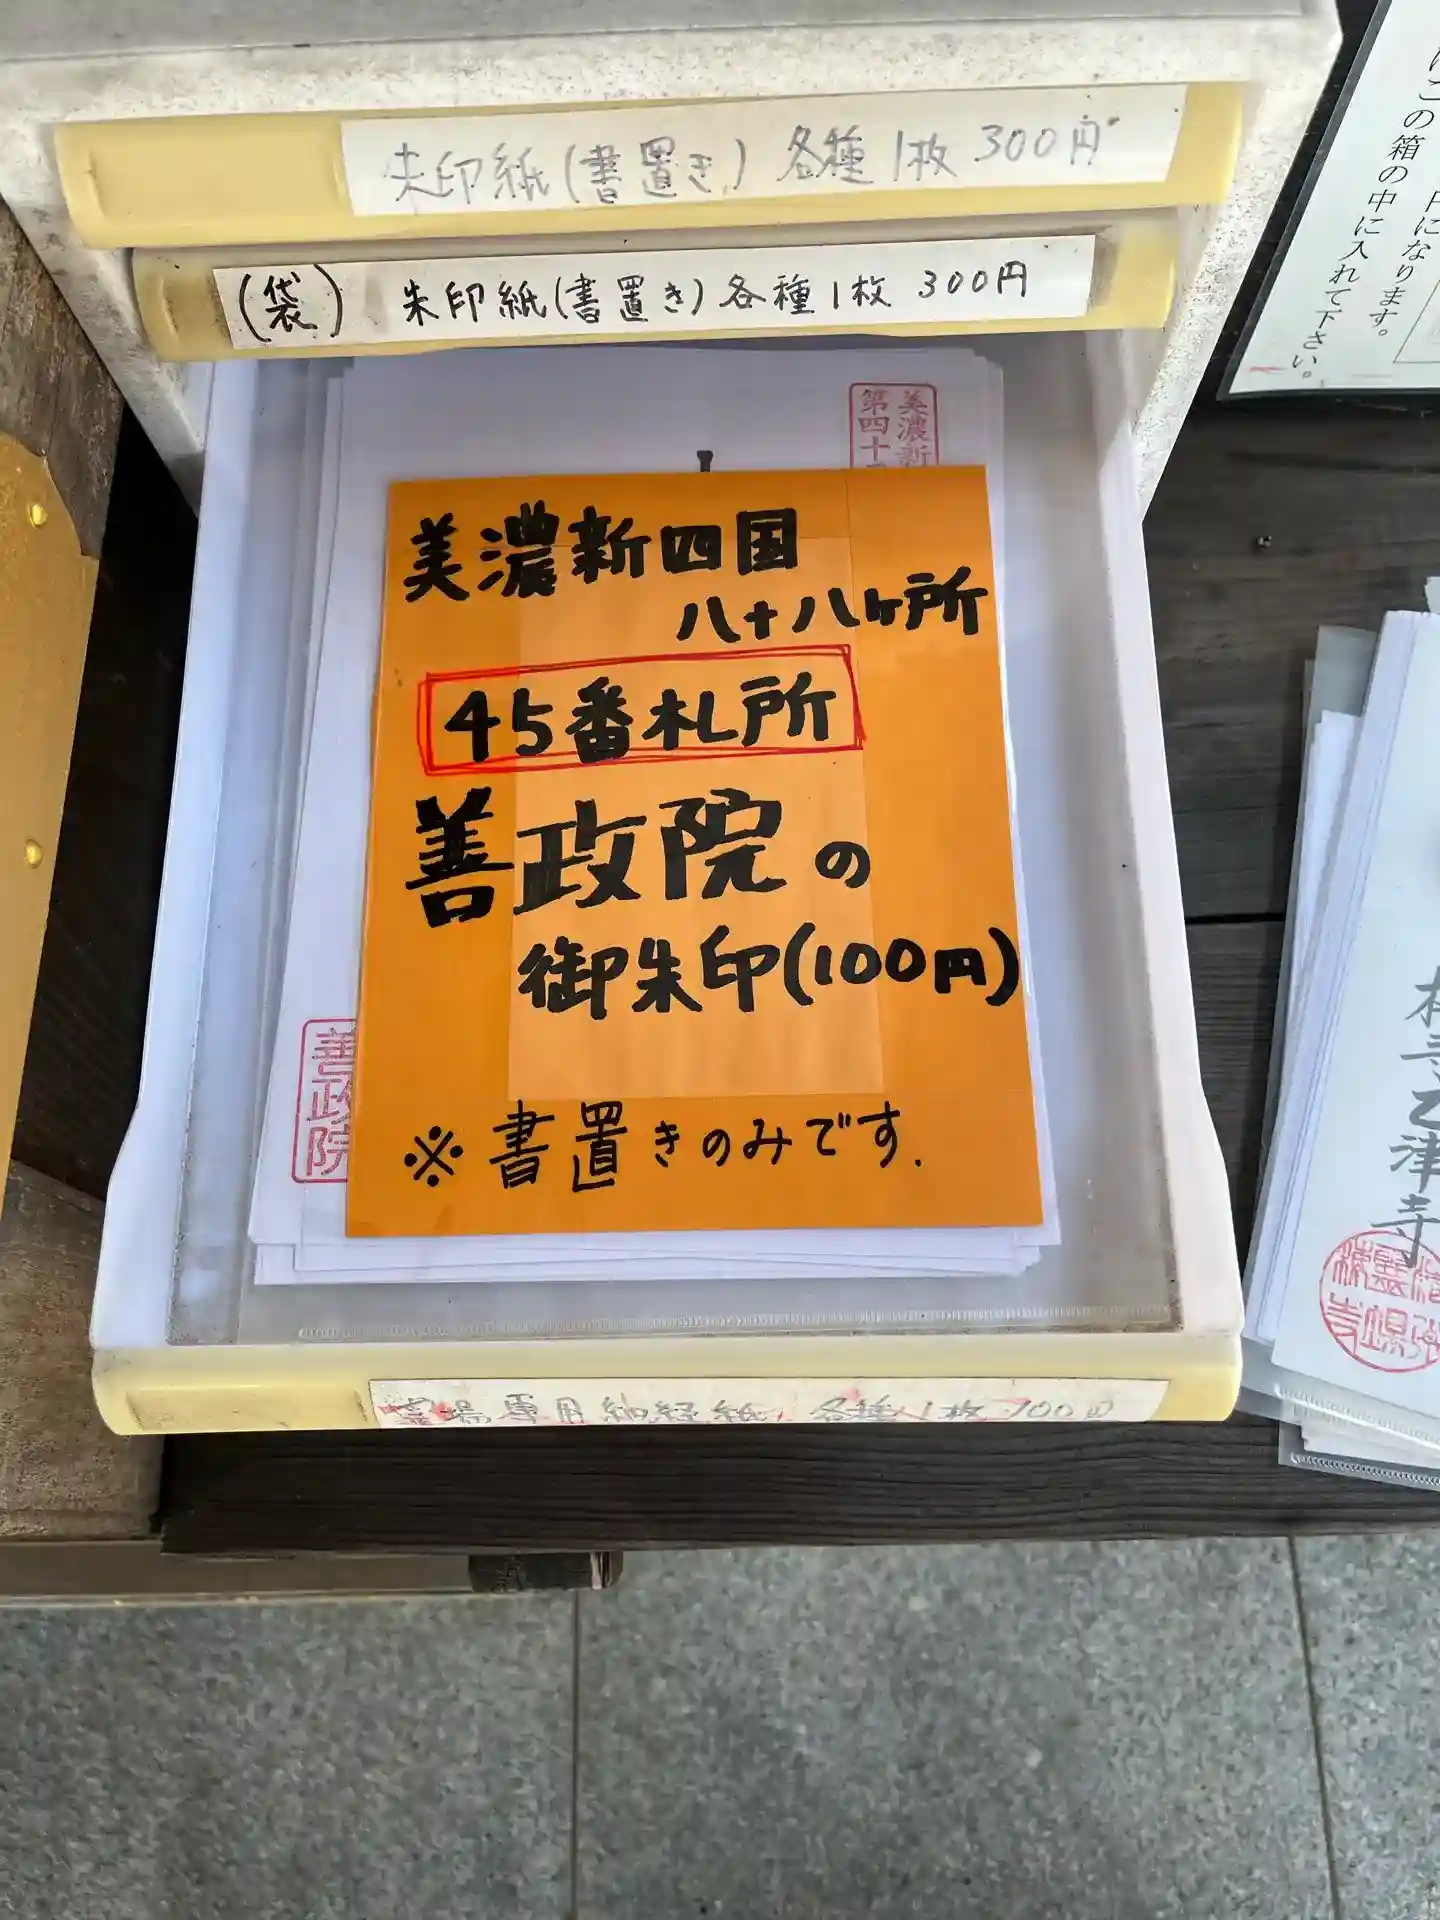 朱印紙(書置き) 各種1枚 300円
(袋) 朱印紙(書置き)各種1枚 300円
この箱の中に入れて下さい。
になります。
美濃新
第四十
美濃新四国
八十八ヶ所
45番札所
善政院の
御朱印(100円)
※書置きのみです.
善政院
乙津寺
霊場専用納経紙 各種1枚100円